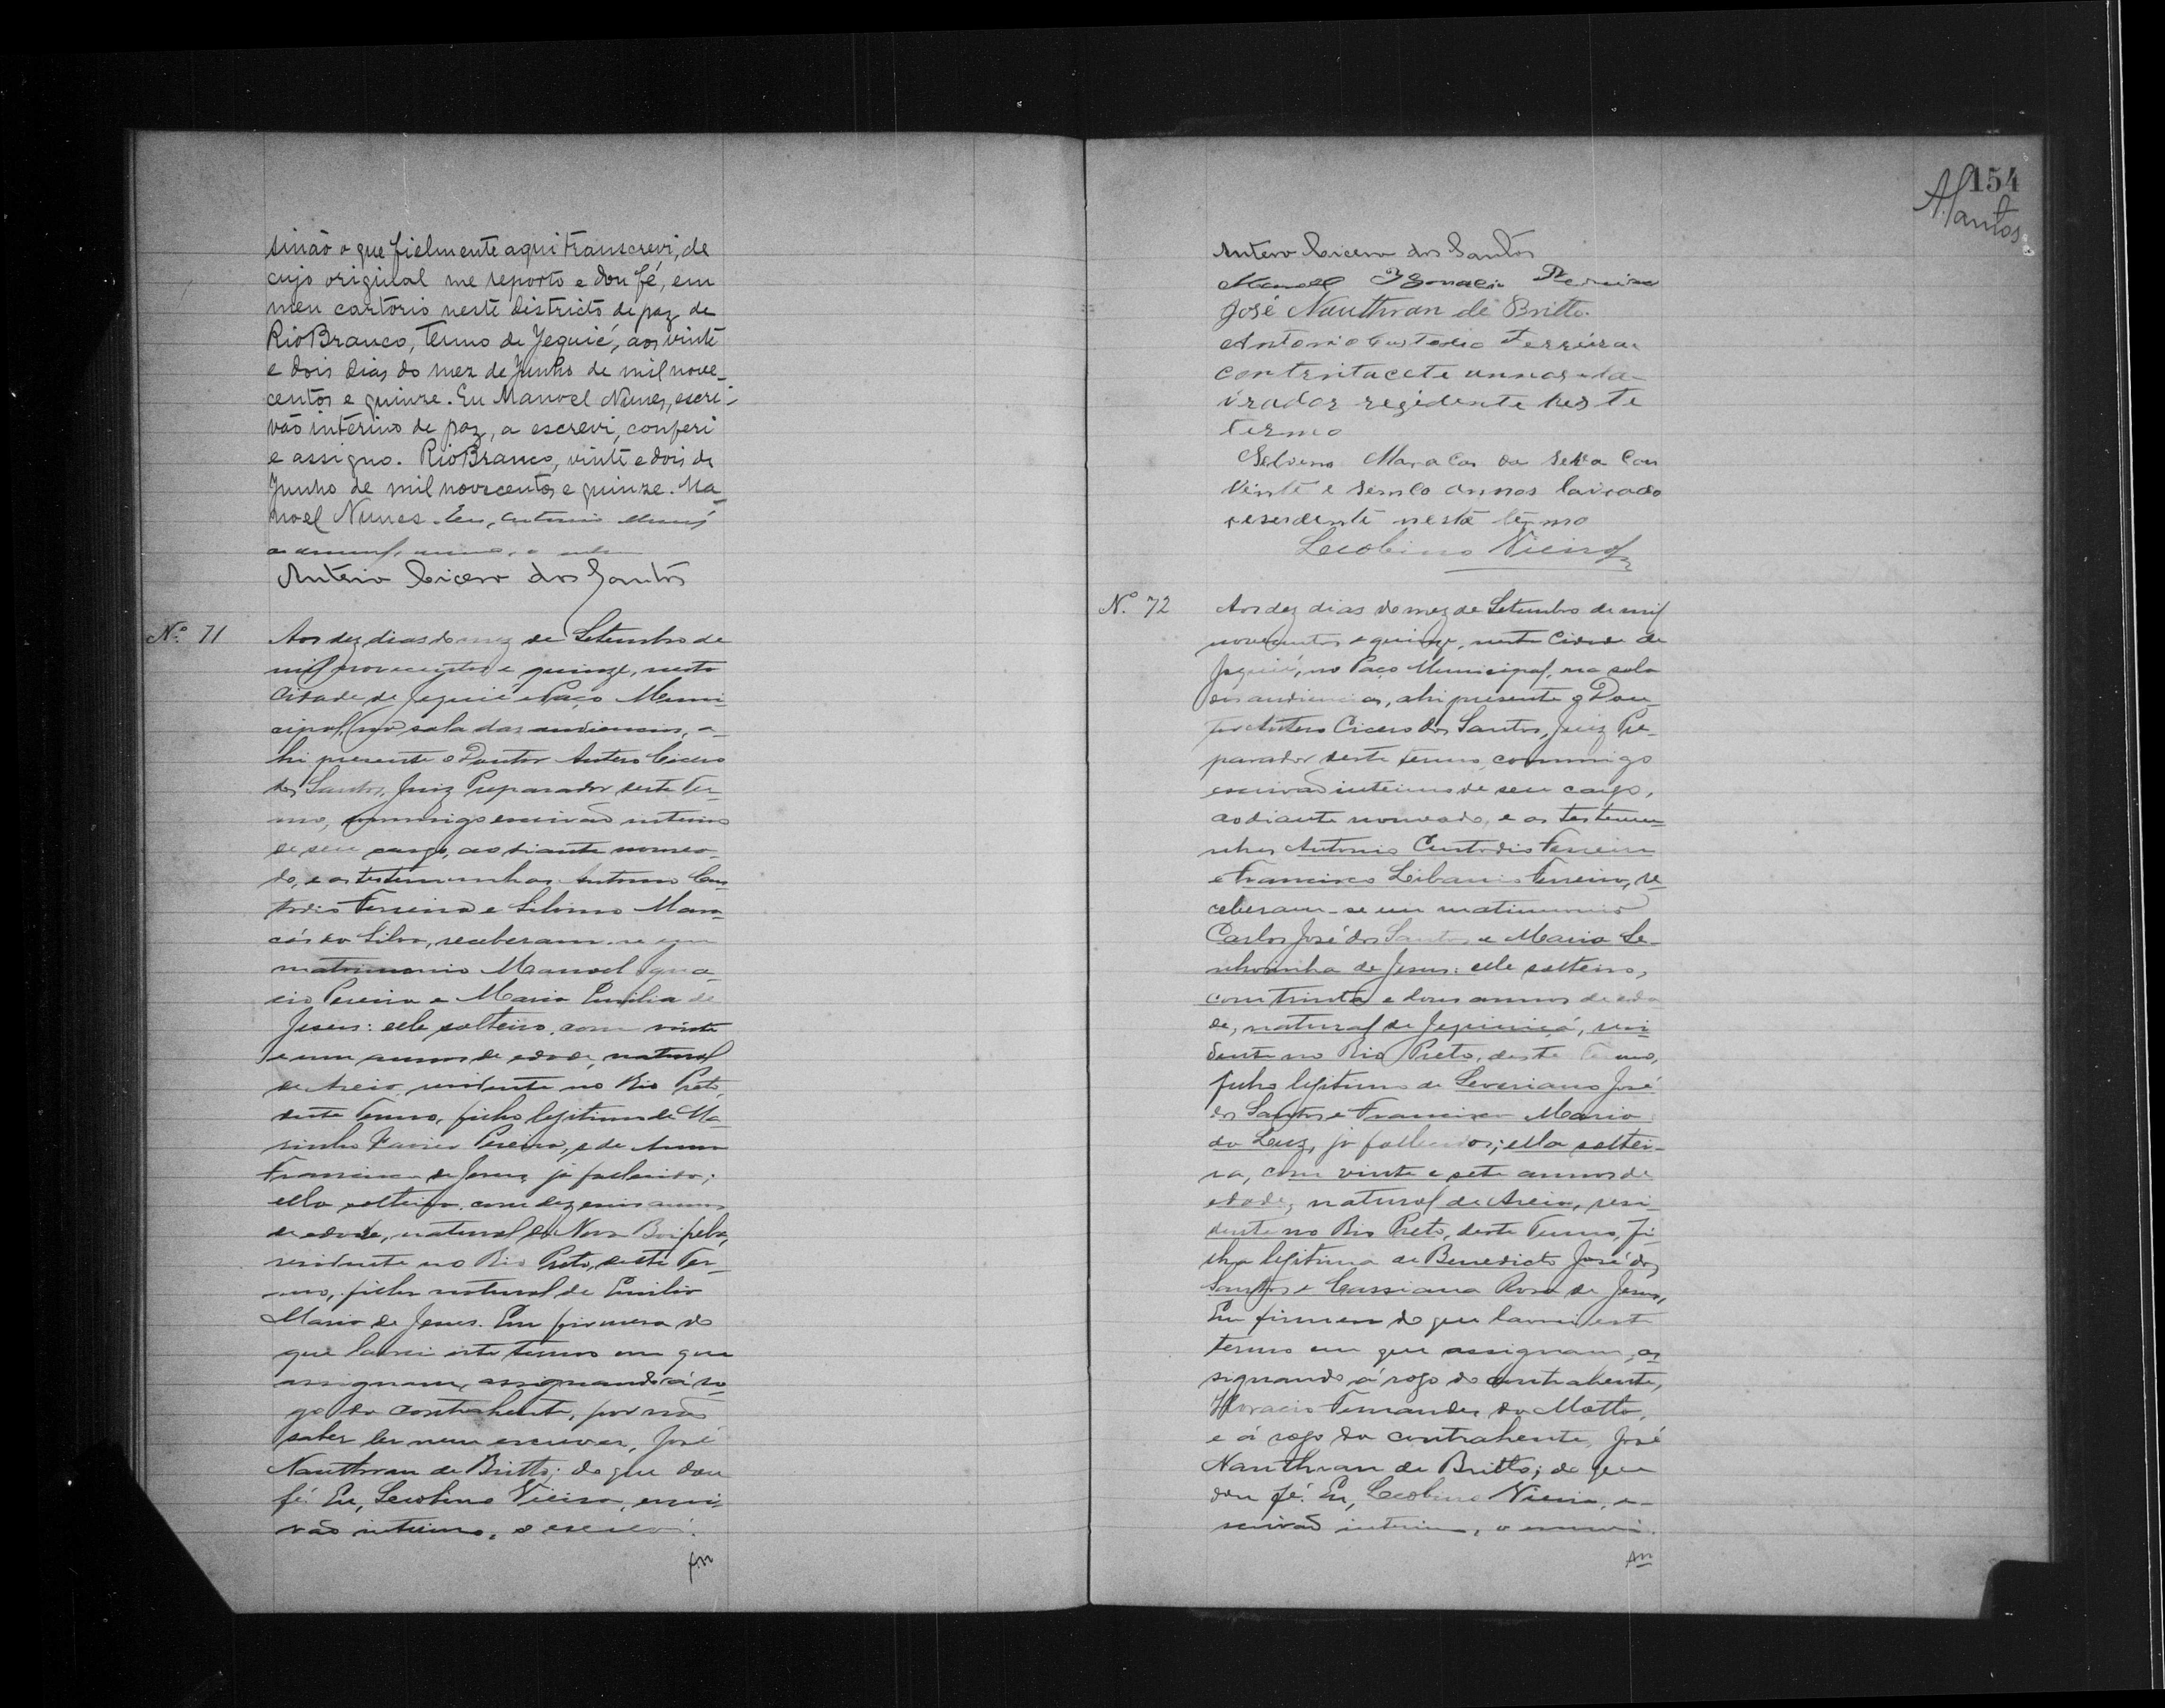 sinão o que fielmente aqui transcrevi, de
cujo original me reporto e dou fé, em
meu cartorio neste districto de paz de
Rio Branco, Termo de Jequié, aos vinte
e dois dias do mez de Junho de mil nove-
centos e quinze. Eu Manoel Nunes, escri-
vão interino de paz, a escrevi, conferi
e assigno. Rio Branco, vinte e dois de
Junho de mil novecentos e quinze. Ma-
noel Nunes. Eu, Antonio
Antero Cicero dos Santos
Nº. 71
Aos dez dias do mez de Setembro de
mil novecentos e quinze, nesta
Cidade de Jequié e Paço Muni-
cipal, na sala das audiencias, a-
hi presente o Doutor Antero Cicero
dos Santos, Juiz Preparador deste Ter-
mo, commigo escrivão interino
de seu cargo, ao diante nomea-
do, e as testemunhas Antonio Cus-
todio Ferreira e Silvino Mara-
cás da Silva, receberam-se em
matrimonio Manoel Igna-
cio Pereira e Maria Emilia de
Jesus: elle solteiro, com vinte
e um annos de edade, natural
de Areia, residente no Rio Preto,
deste Termo, filho legitimo de Ma-
rinho Xavier Pereira, e de Anna
Francisca de Jesus, já fallecido;
ella solteira, com dezeseis annos
de edade, natural de Nova Boipeba,
residente no Rio Preto, deste Ter-
mo, filha natural de Emilia
Maria de Jesus. Em firmesa do
que lavrei este termo em que
assignam, assignando á ro-
go da contrahente, por não
saber ler nem escrever, José
Nauthran de Britto; do que dou
fé. Eu, Lecobino Vieira, escri-
vão interino, o escrevi.
154
A. Santos
Antero Cicero dos Santos
Manoel Ignacio Pereira
José Nauthran de Britto.
Antonio Custodio Ferreira
com trinta e cete annos e la-
vrador regidente neste
termo
Selvino Maracas da Selva Con
Vinte e sinco annos lavrado
resendente neste têrmo
Lecobino Vieira
Nº. 72
Aos dez dias do mez de Setembro de mil
novecentos e quinze, nesta Cidade de
Jequié, no Paço Municipal, na sala
das audiencias, ahi presente o Dou-
tor Antero Cicero dos Santos, Juiz Pre-
parador deste termo, commigo
escrivão interino de seu cargo,
ao diante nomeado, e as testemu-
nhas Antonio Custodio Ferreira
e Francisco Libanio Ferreira, re-
ceberam-se em matrimonio
Carlos José dos Santos e Maria Se-
nhorinha de Jesus: elle solteiro,
com trinta e dous annos de eda-
de, natural de Jequiriçá, resi-
dente no Rio Preto, deste Termo,
filho legitimo de Severiano José
dos Santos e Francisca Maria
da Luz, já fallecidos; ella soltei-
ra, com vinte e sete annos de
edade, natural de Areia, resi-
dente no Rio Preto, deste Termo, fi-
lha legitima de Benedicto José dos
Santos e Cassiana Rosa de Jesus,
Em firmesa do que lavrei este
termo em que assignam, as-
signando á rogo do contrahente,
Horacio Fernandes da Motta,
e á rogo da contrahente, José
Nauthran de Britto; do que
dou fé. Eu, Lecobino Vieira, es-
crivão interino, o escrevi.